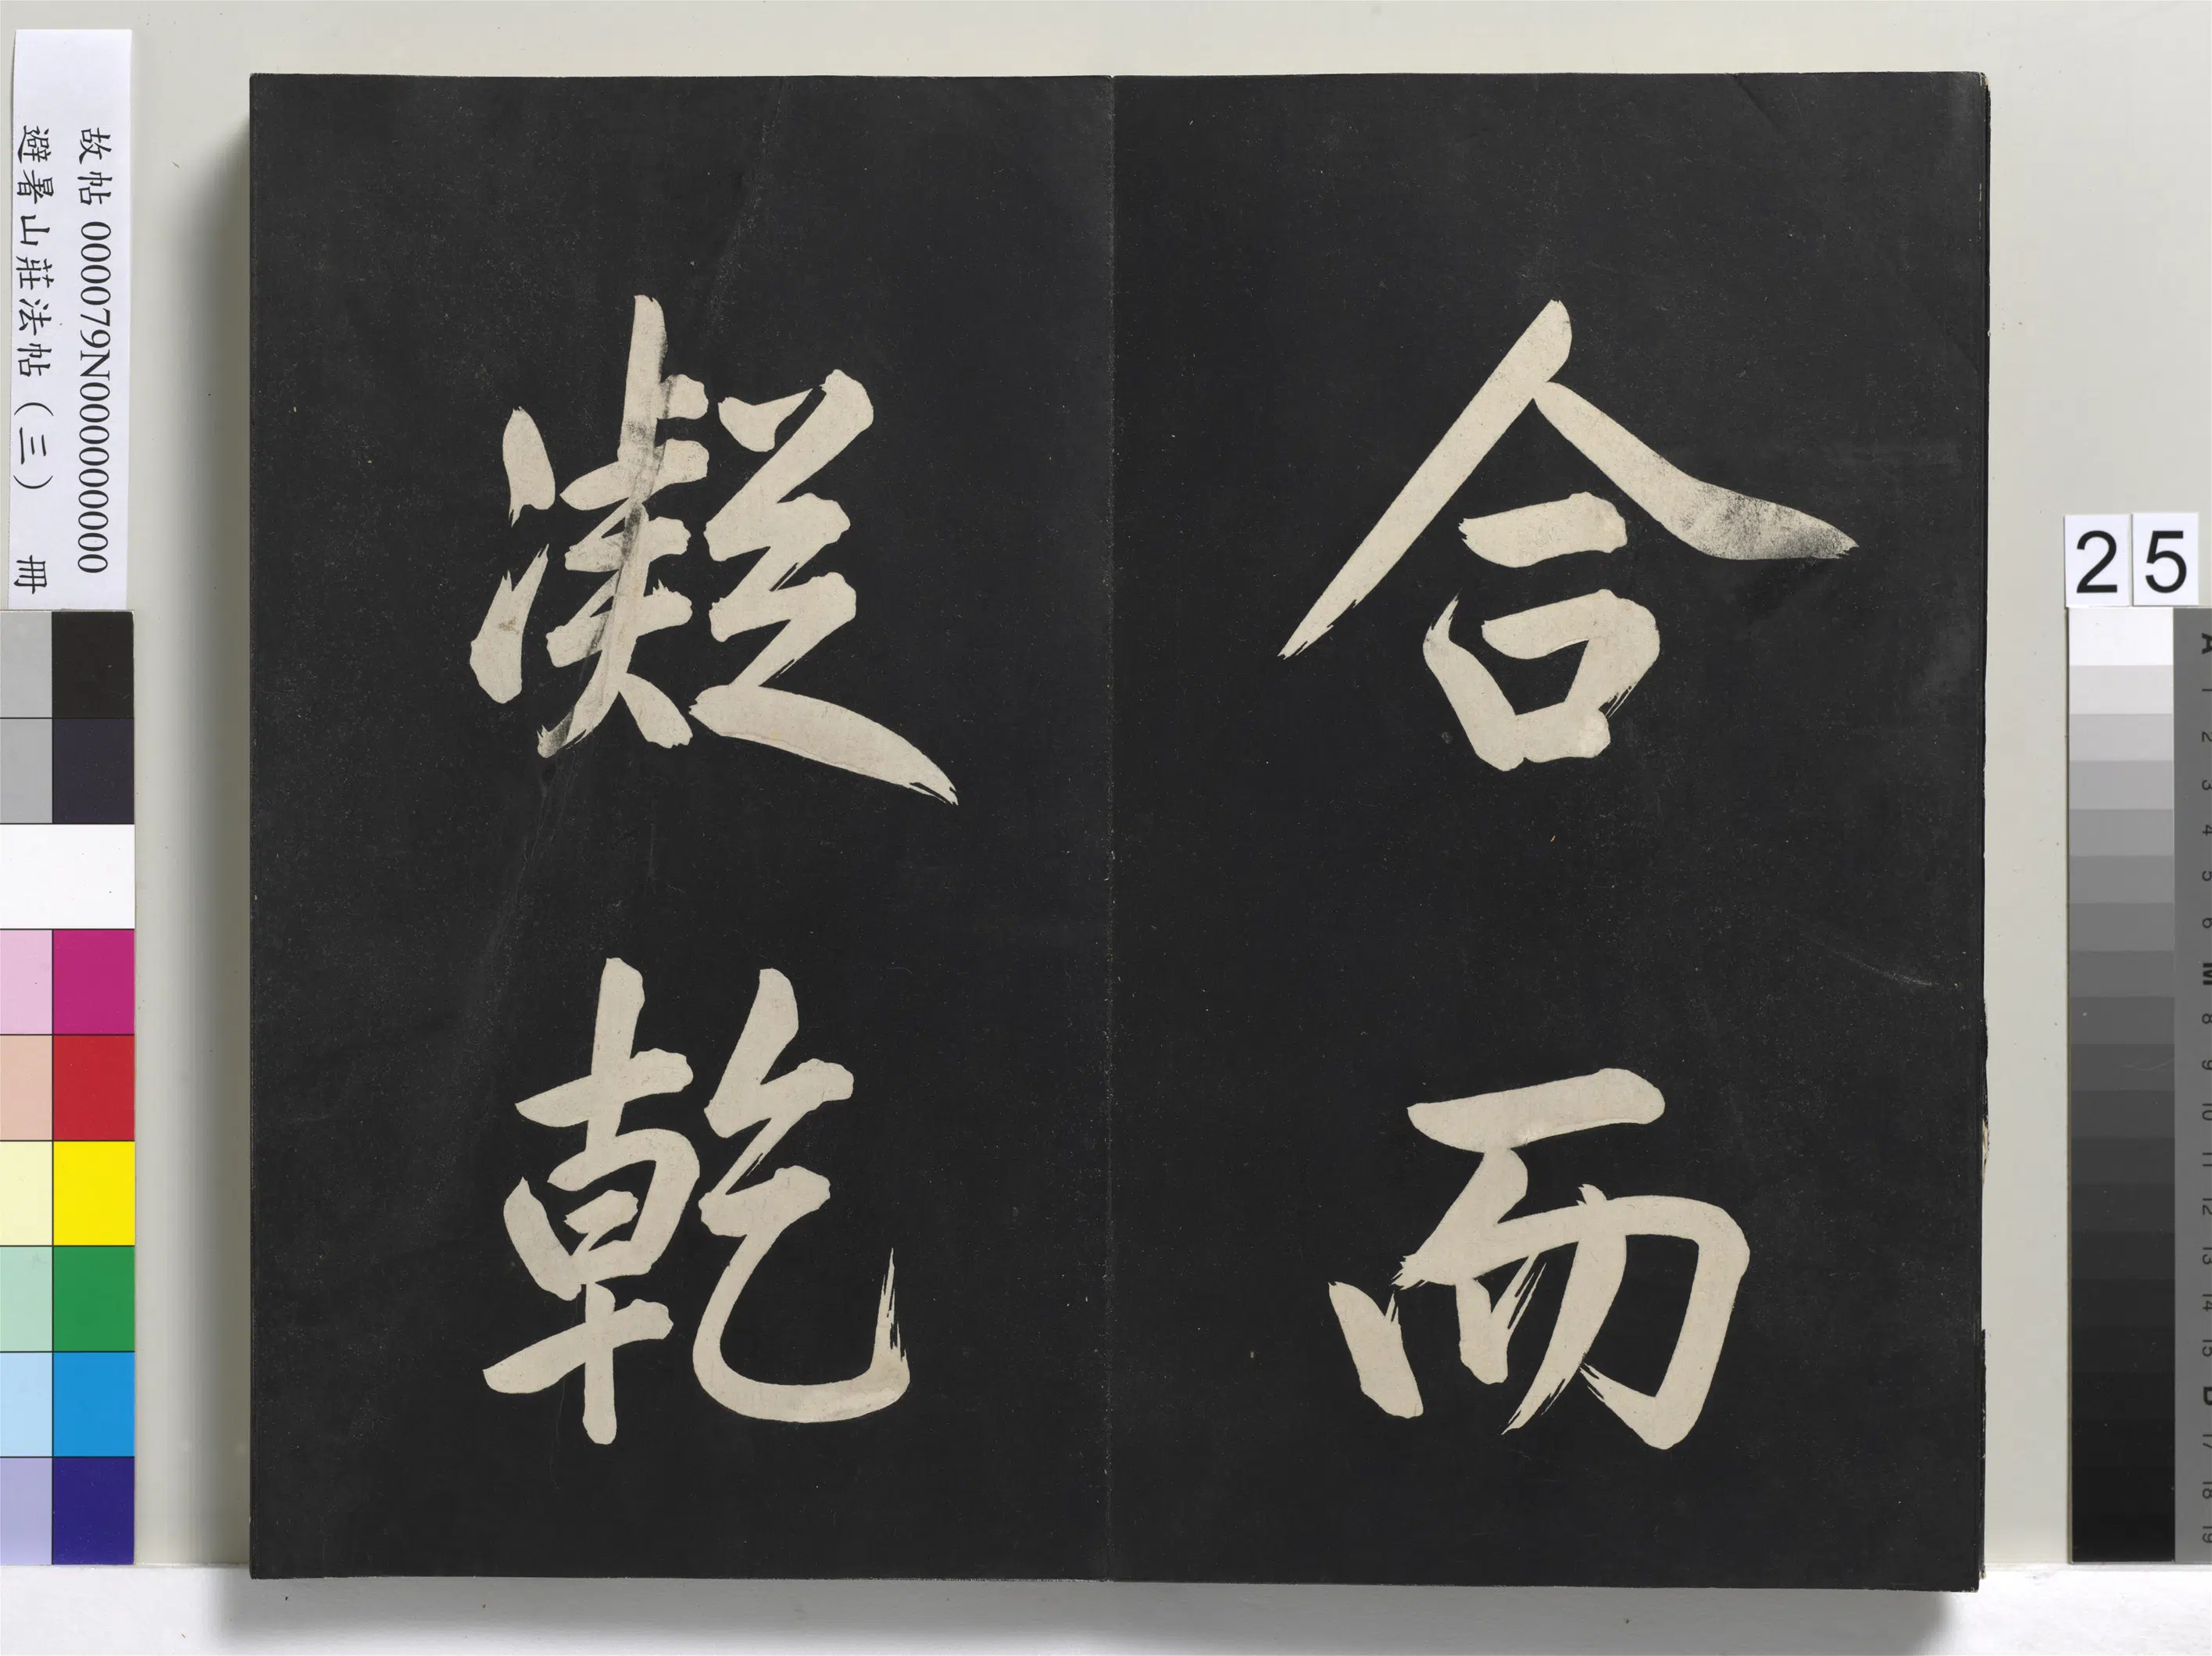 合而
凝乾
故帖 000079N000000000
避暑山莊法帖（三） 冊
25
A 1 2 3 4 5 6 M 8 9 10 11 12 13 14 15 B 17 18 19